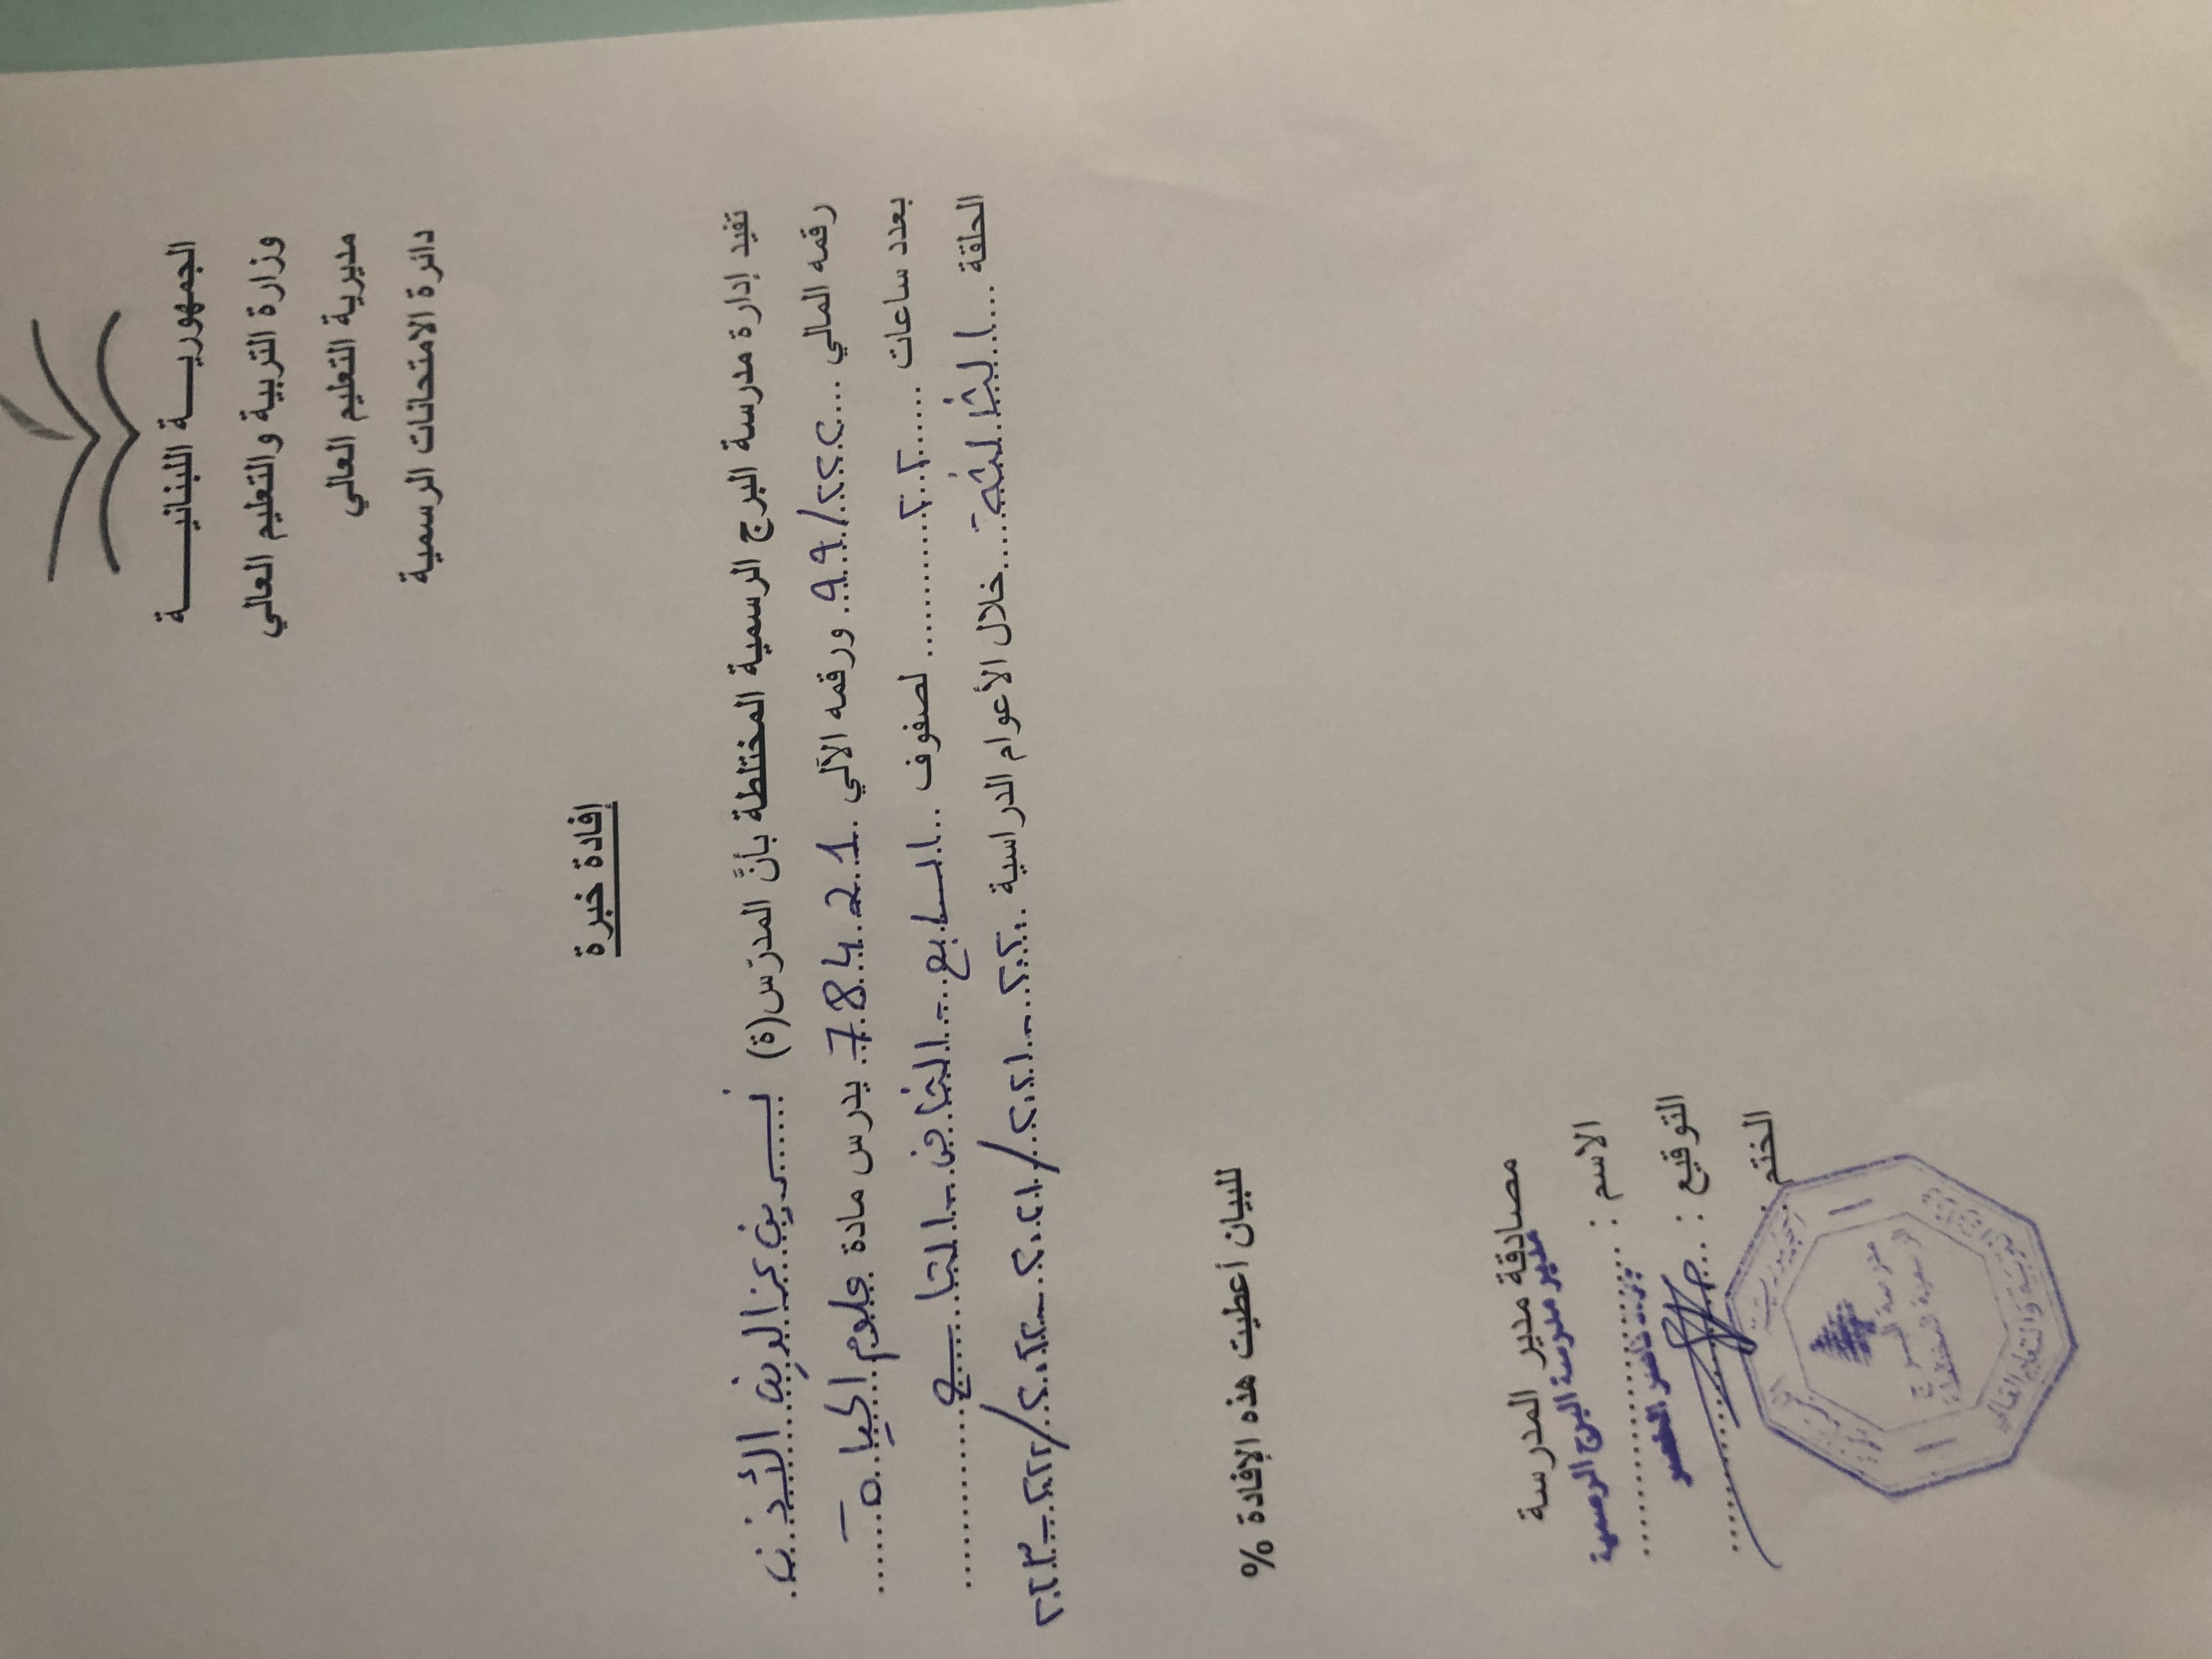 الجمهوريـــة اللبنانيـــــة
وزارة التربية والتعليم العالي
مديرية التعليم العالي
دائرة الامتحانات الرسمية
إفادة خبرة
تفيد إدارة مدرسة البرج الرسمية المختلطة بأنَّ المدرّس(ة) نسرين عز الدين الأدن
رقمه المالي ....٩٩/٢٢٢ ورقمه الآلي 784 21 يدرس مادة علوم الحياة
بعدد ساعات ......٢٠٢ لصفوف ...السابع - الثامن - التاسع
الحلقة ....الثالثة.....خلال الأعوام الدراسية ٢٠٢٠-٢٠٢١/٢٠٢١-٢٠٢٢/
٢٠٢٢-٢٠٢٣
للبيان أعطيت هذه الإفادة %
مصادقة مدير المدرسة
مدير مدرسة البرج الرسمية
الاسم :
ناصر الخضر
التوقيع :
الختم
مدرسة
الرسمية المختلطة
التربية والتعليم العالي